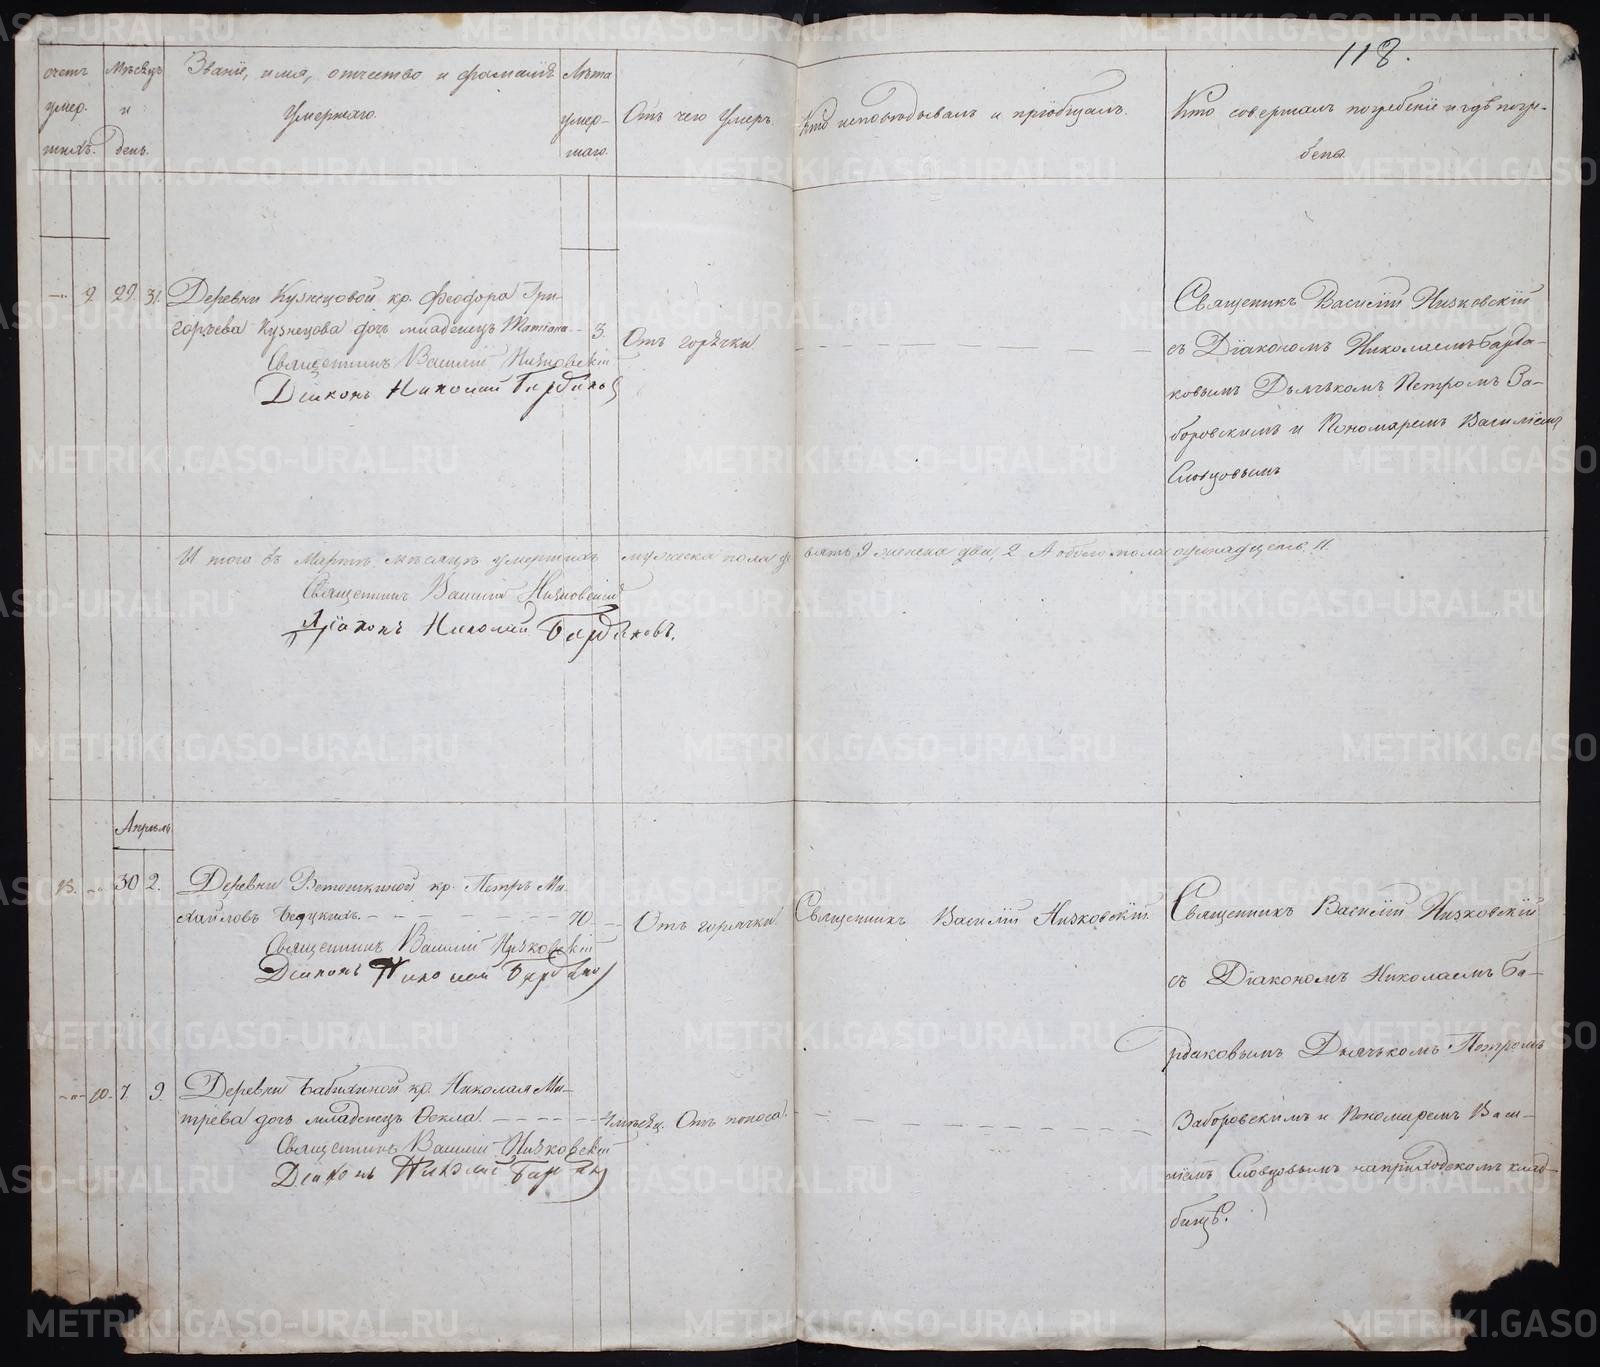 118.
счетъ умер- шихъ.
Мѣсяцъ и день.
Званіе, имя, отчество и фамилія
Умершаго.
Лѣта умер- шаго.
Отъ чего Умеръ.
Кто исповѣдывалъ и пріобщалъ.
Кто совершалъ погребеніе и гдѣ погре-
бенъ.
9. 29. 31. Деревни Кузнецовой кр. Феодора Гри-
горьева Кузнецова дочь младенецъ 3.
Отъ горячки
Священникъ Василій Низковскій
Діаконъ Николай Бардаковъ
Священникъ Василій Низковскій
съ Діакономъ Николаемъ Барда-
ковымъ Дьячькомъ Петромъ За-
боровскимъ и Пономаремъ Василіемъ
Словцовымъ
И того въ Мартѣ мѣсяцѣ умершихъ мужеска пола девять 9 женска два, 2. А обоего пола одинадцать 11.
Священникъ Василій Низковскій
Діаконъ Николай Бардаковъ.
Апрѣль
30 2. Деревни Ветошкиной кр. Петръ Ми-
хайловъ 70.
Отъ горячки.
Священникъ Василій Низковскій.
Священникъ Василій Низковскій
Діаконъ Николай Бардаковъ
Священникъ Василій Низковскій
съ Діакономъ Николаемъ Ба-
рдаковымъ Дьячькомъ Петромъ
Заборовскимъ и Пономаремъ Васи-
ліемъ Словцовымъ на приходскомъ клад-
бищѣ.
10. 7. 9. Деревни Бабихиной кр. Николая Ми-
трева дочь младенецъ Фекла
мѣсяц. Отъ поноса.
Священникъ Василій Низковскій
Діаконъ Николай Бардаковъ
METRIKI.GASO-URAL.RU